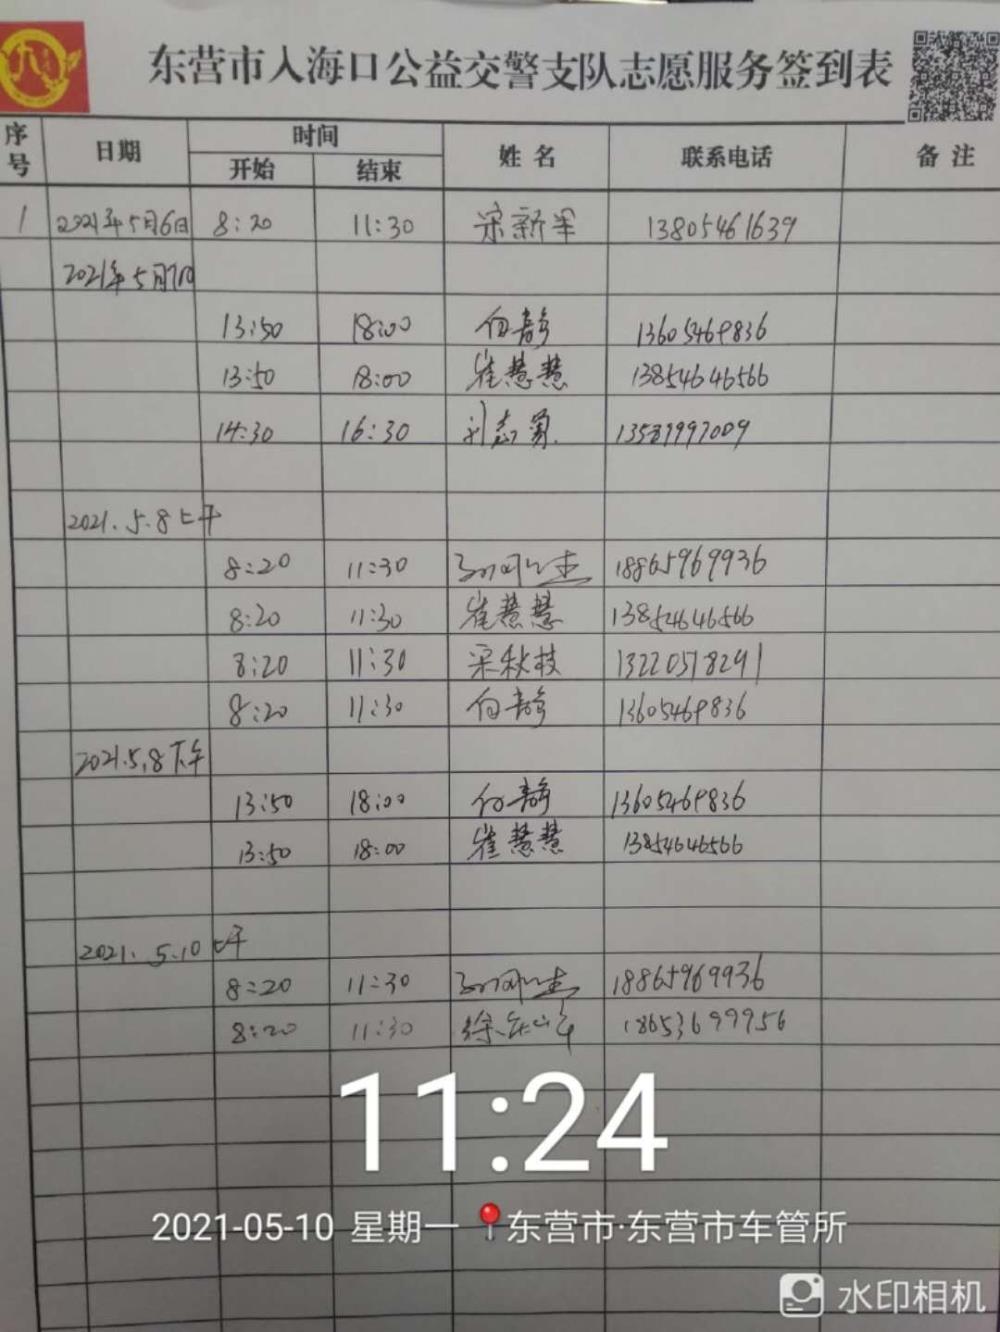 东营市入海口公益交警支队志愿服务签到表
序号 日期 时间 姓名 联系电话 备注
开始 结束
1 2021年5月6日 8:20 11:30 宋新军 13805461639
2021年5月7日
13:50 18:00 白静 13605469836
13:50 18:00 崔慧慧 13854646566
14:30 16:30 刘志勇 13589997009
2021.5.8上午
8:20 11:30 18865969936
8:20 11:30 崔慧慧 13854646566
8:20 11:30 宋秋枝 13220518291
8:20 11:30 白静 13605469836
2021.5.8下午
13:50 18:00 白静 13605469836
13:50 18:00 崔慧慧 13854646566
2021.5.10上午
8:20 11:30 18865969936
8:20 11:30 18653699956
11:24
2021-05-10 星期一 东营市·东营市车管所
水印相机